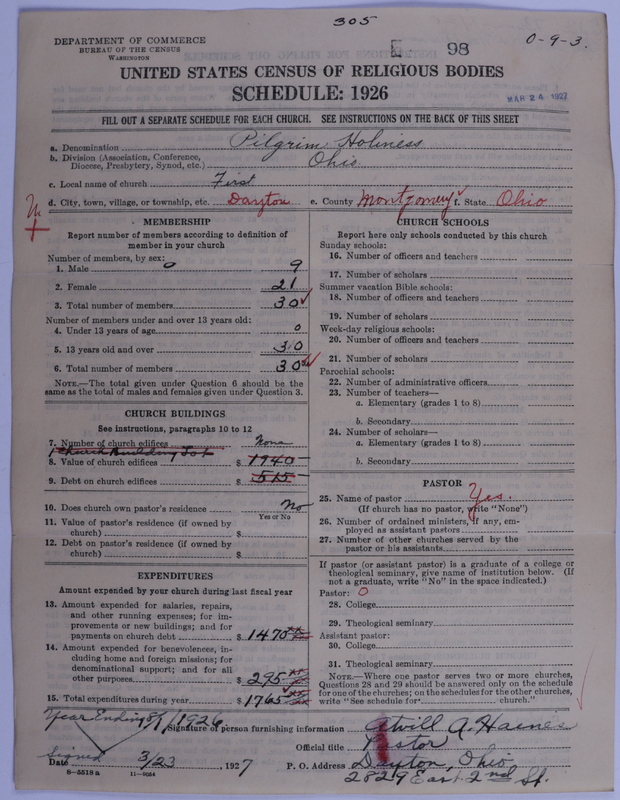 305
DEPARTMENT OF COMMERCE
BUREAU OF THE CENSUS
WASHINGTON
E 98
0-9-3.
UNITED STATES CENSUS OF RELIGIOUS BODIES
SCHEDULE: 1926
MAR 24 1927
FILL OUT A SEPARATE SCHEDULE FOR EACH CHURCH. SEE INSTRUCTIONS ON THE BACK OF THIS SHEET
a. Denomination Pilgrim Holiness
b. Division (Association, Conference, Diocese, Presbytery, Synod, etc.) Ohio
c. Local name of church First
d. City, town, village, or township, etc. Dayton e. County Montgomery f. State Ohio
MEMBERSHIP
Report number of members according to definition of
member in your church
Number of members, by sex:
1. Male 9
2. Female 21
3. Total number of members 30
Number of members under and over 13 years old:
4. Under 13 years of age 0
5. 13 years old and over 30
6. Total number of members 30
NOTE.—The total given under Question 6 should be the
same as the total of males and females given under Question 3.
CHURCH BUILDINGS
See instructions, paragraphs 10 to 12
7. Number of church edifices None
1 Church Building Lot
8. Value of church edifices $ 1940
9. Debt on church edifices $ 515
10. Does church own pastor's residence No
Yes or No
11. Value of pastor's residence (if owned by
church) $
12. Debt on pastor's residence (if owned by
church) $
EXPENDITURES
Amount expended by your church during last fiscal year
13. Amount expended for salaries, repairs,
and other running expenses; for im-
provements or new buildings; and for
payments on church debt $ 1470 xx
14. Amount expended for benevolences, in-
cluding home and foreign missions; for
denominational support; and for all
other purposes $ 295 xx
15. Total expenditures during year $ 1765 xx
Year Ending 8/1/1926
CHURCH SCHOOLS
Report here only schools conducted by this church
Sunday schools:
16. Number of officers and teachers
17. Number of scholars
Summer vacation Bible schools:
18. Number of officers and teachers
19. Number of scholars
Week-day religious schools:
20. Number of officers and teachers
21. Number of scholars
Parochial schools:
22. Number of administrative officers
23. Number of teachers—
a. Elementary (grades 1 to 8)
b. Secondary
24. Number of scholars—
a. Elementary (grades 1 to 8)
b. Secondary
PASTOR
25. Name of pastor Yes.
(If church has no pastor, write "None")
26. Number of ordained ministers, if any, em-
ployed as assistant pastors
27. Number of other churches served by the
pastor or his assistants
If pastor (or assistant pastor) is a graduate of a college or
theological seminary, give name of institution below. (If
not a graduate, write "No" in the space indicated.)
Pastor: 0
28. College
29. Theological seminary
Assistant pastor:
30. College
31. Theological seminary
NOTE.—Where one pastor serves two or more churches,
Questions 28 and 29 should be answered only on the schedule
for one of the churches; on the schedules for the other churches,
write "See schedule for church."
Signature of person furnishing information Atwill A. Haines
Official title Pastor
Signed
Date 3/23, 1927 P. O. Address Dayton, Ohio
2829 East 2nd St.
8—5518 a 11—9054